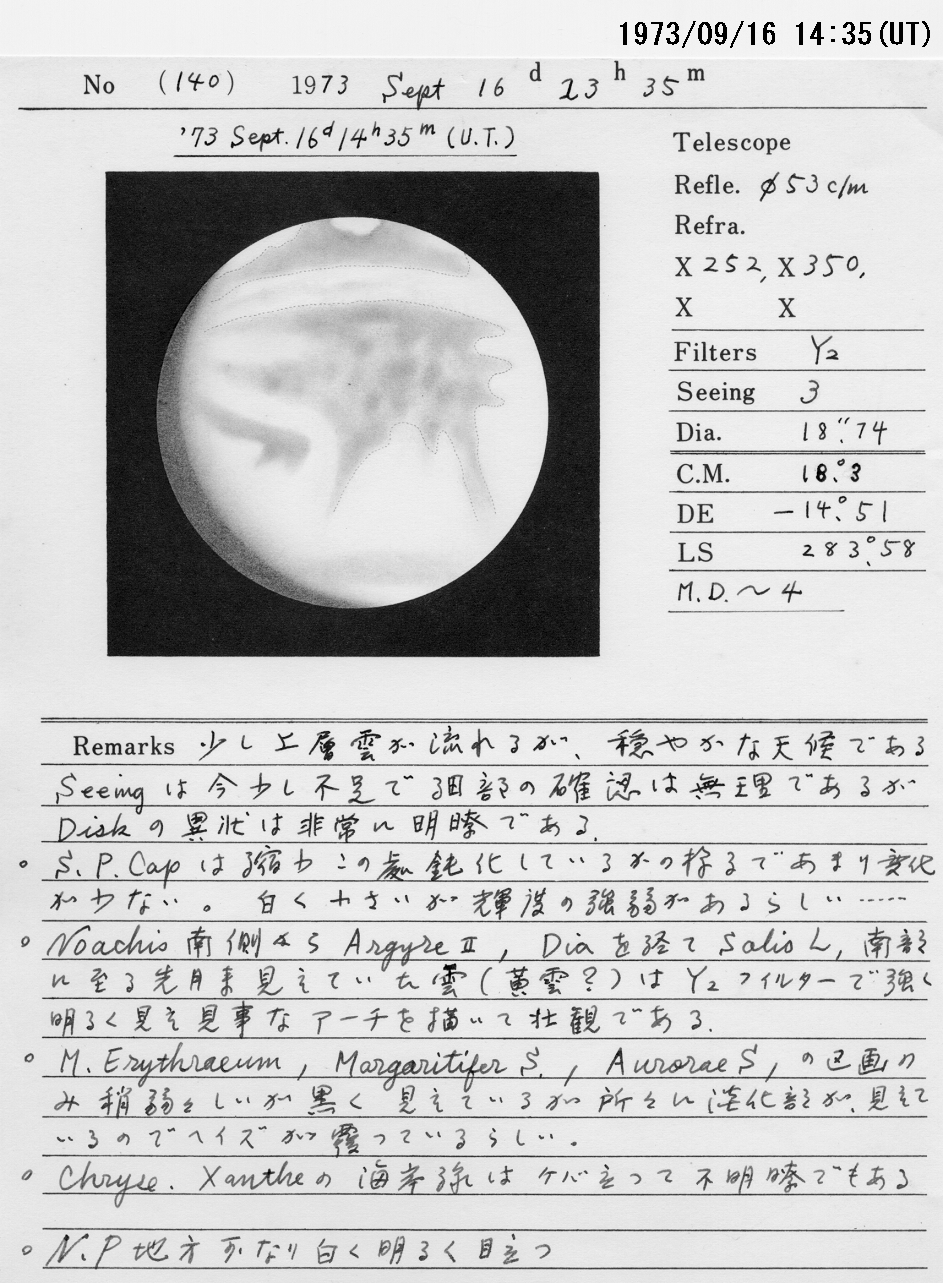 1973/09/16 14:35(UT)
No (140) 1973 Sept 16 d 23 h 35 m
'73 Sept. 16d 14h 35m (U.T.)
Telescope
Refle. φ53 c/m
Refra.
X 252, X 350,
X X
Filters Y2
Seeing 3
Dia. 18".74
C.M. 18°.3
DE −14°.51
LS 283°.58
M.D. ~ 4
Remarks 少し上層雲が流れるが、穏やかな天候である
Seeing は今少し不足で細部の確認は無理であるが
Diskの異状は非常に明瞭である.
○ S.P.Cap は縮小この処鈍化しているかの様であまり変化
が少ない。白く小さいが輝度の強弱があるらしい……
○ Noachis 南側から Argyre II, Dia を経て Solis L, 南部
に至る先月来見えていた雲(黄雲?)はY2フィルターで強く
明るく見え見事なアーチを描いて壮観である.
○ M. Erythraeum, Margaritifer S., Aurorae S, の区画の
み稍弱々しいが黒く見えているが所々に淡化部が、見えて
いるのでヘイズが覆っているらしい。
○ Chryse. Xantheの海岸線はケバ立って不明瞭でもある
○ N.P地方かなり白く明るく目立つ